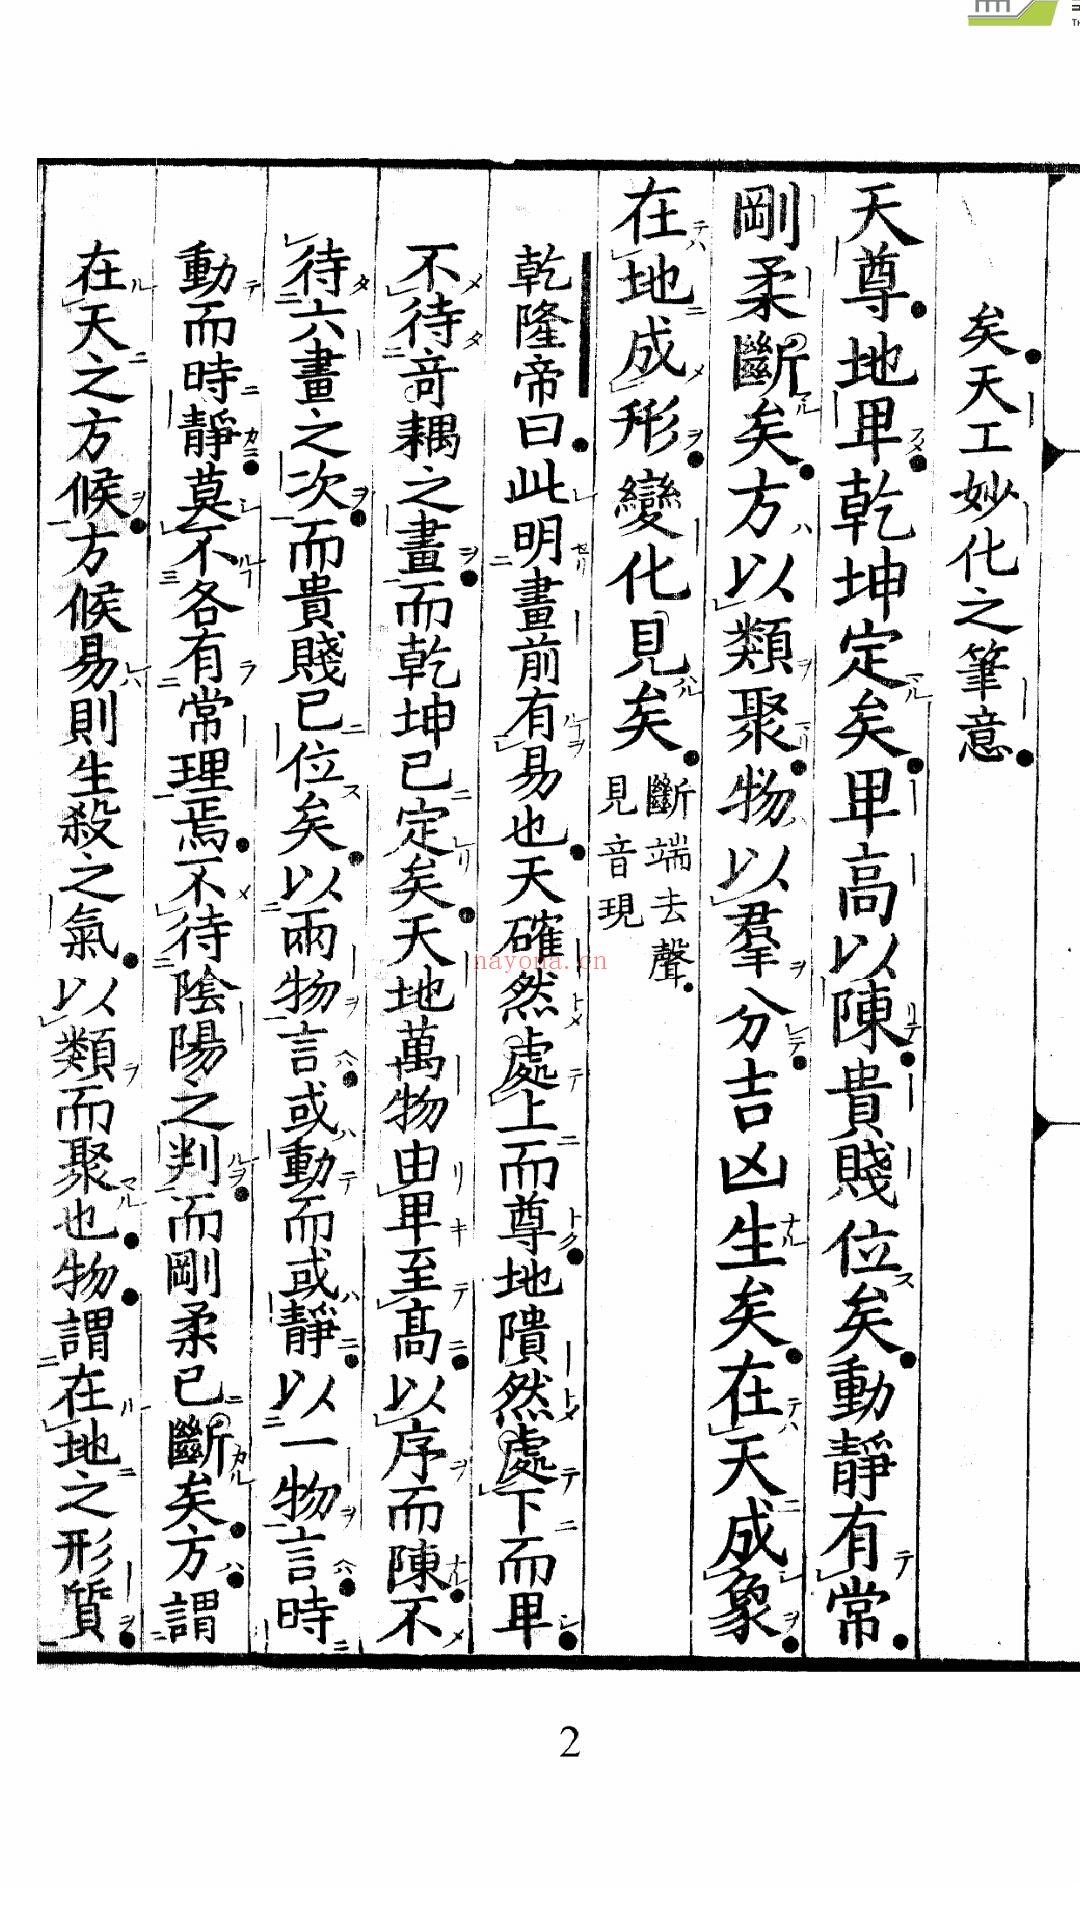 矣天工妙化之筆意
天尊地卑乾坤定矣卑高以陳貴賤位矣動靜有常
剛柔斷矣方以類聚物以羣分吉凶生矣在天成象
在地成形變化見矣
斷端去聲
見音現
乾隆帝曰此明畫前有易也天確然處上而尊地隤然處下而卑
不待奇耦之畫而乾坤已定矣天地萬物由卑至高以序而陳不
待六畫之次而貴賤已位矣以兩物言或動而或靜以一物言時
動而時靜莫不各有常理焉不待陰陽之判而剛柔已斷矣方謂
在天之方候方候易則生殺之氣以類而聚也物謂在地之形質
nayona.cn
2